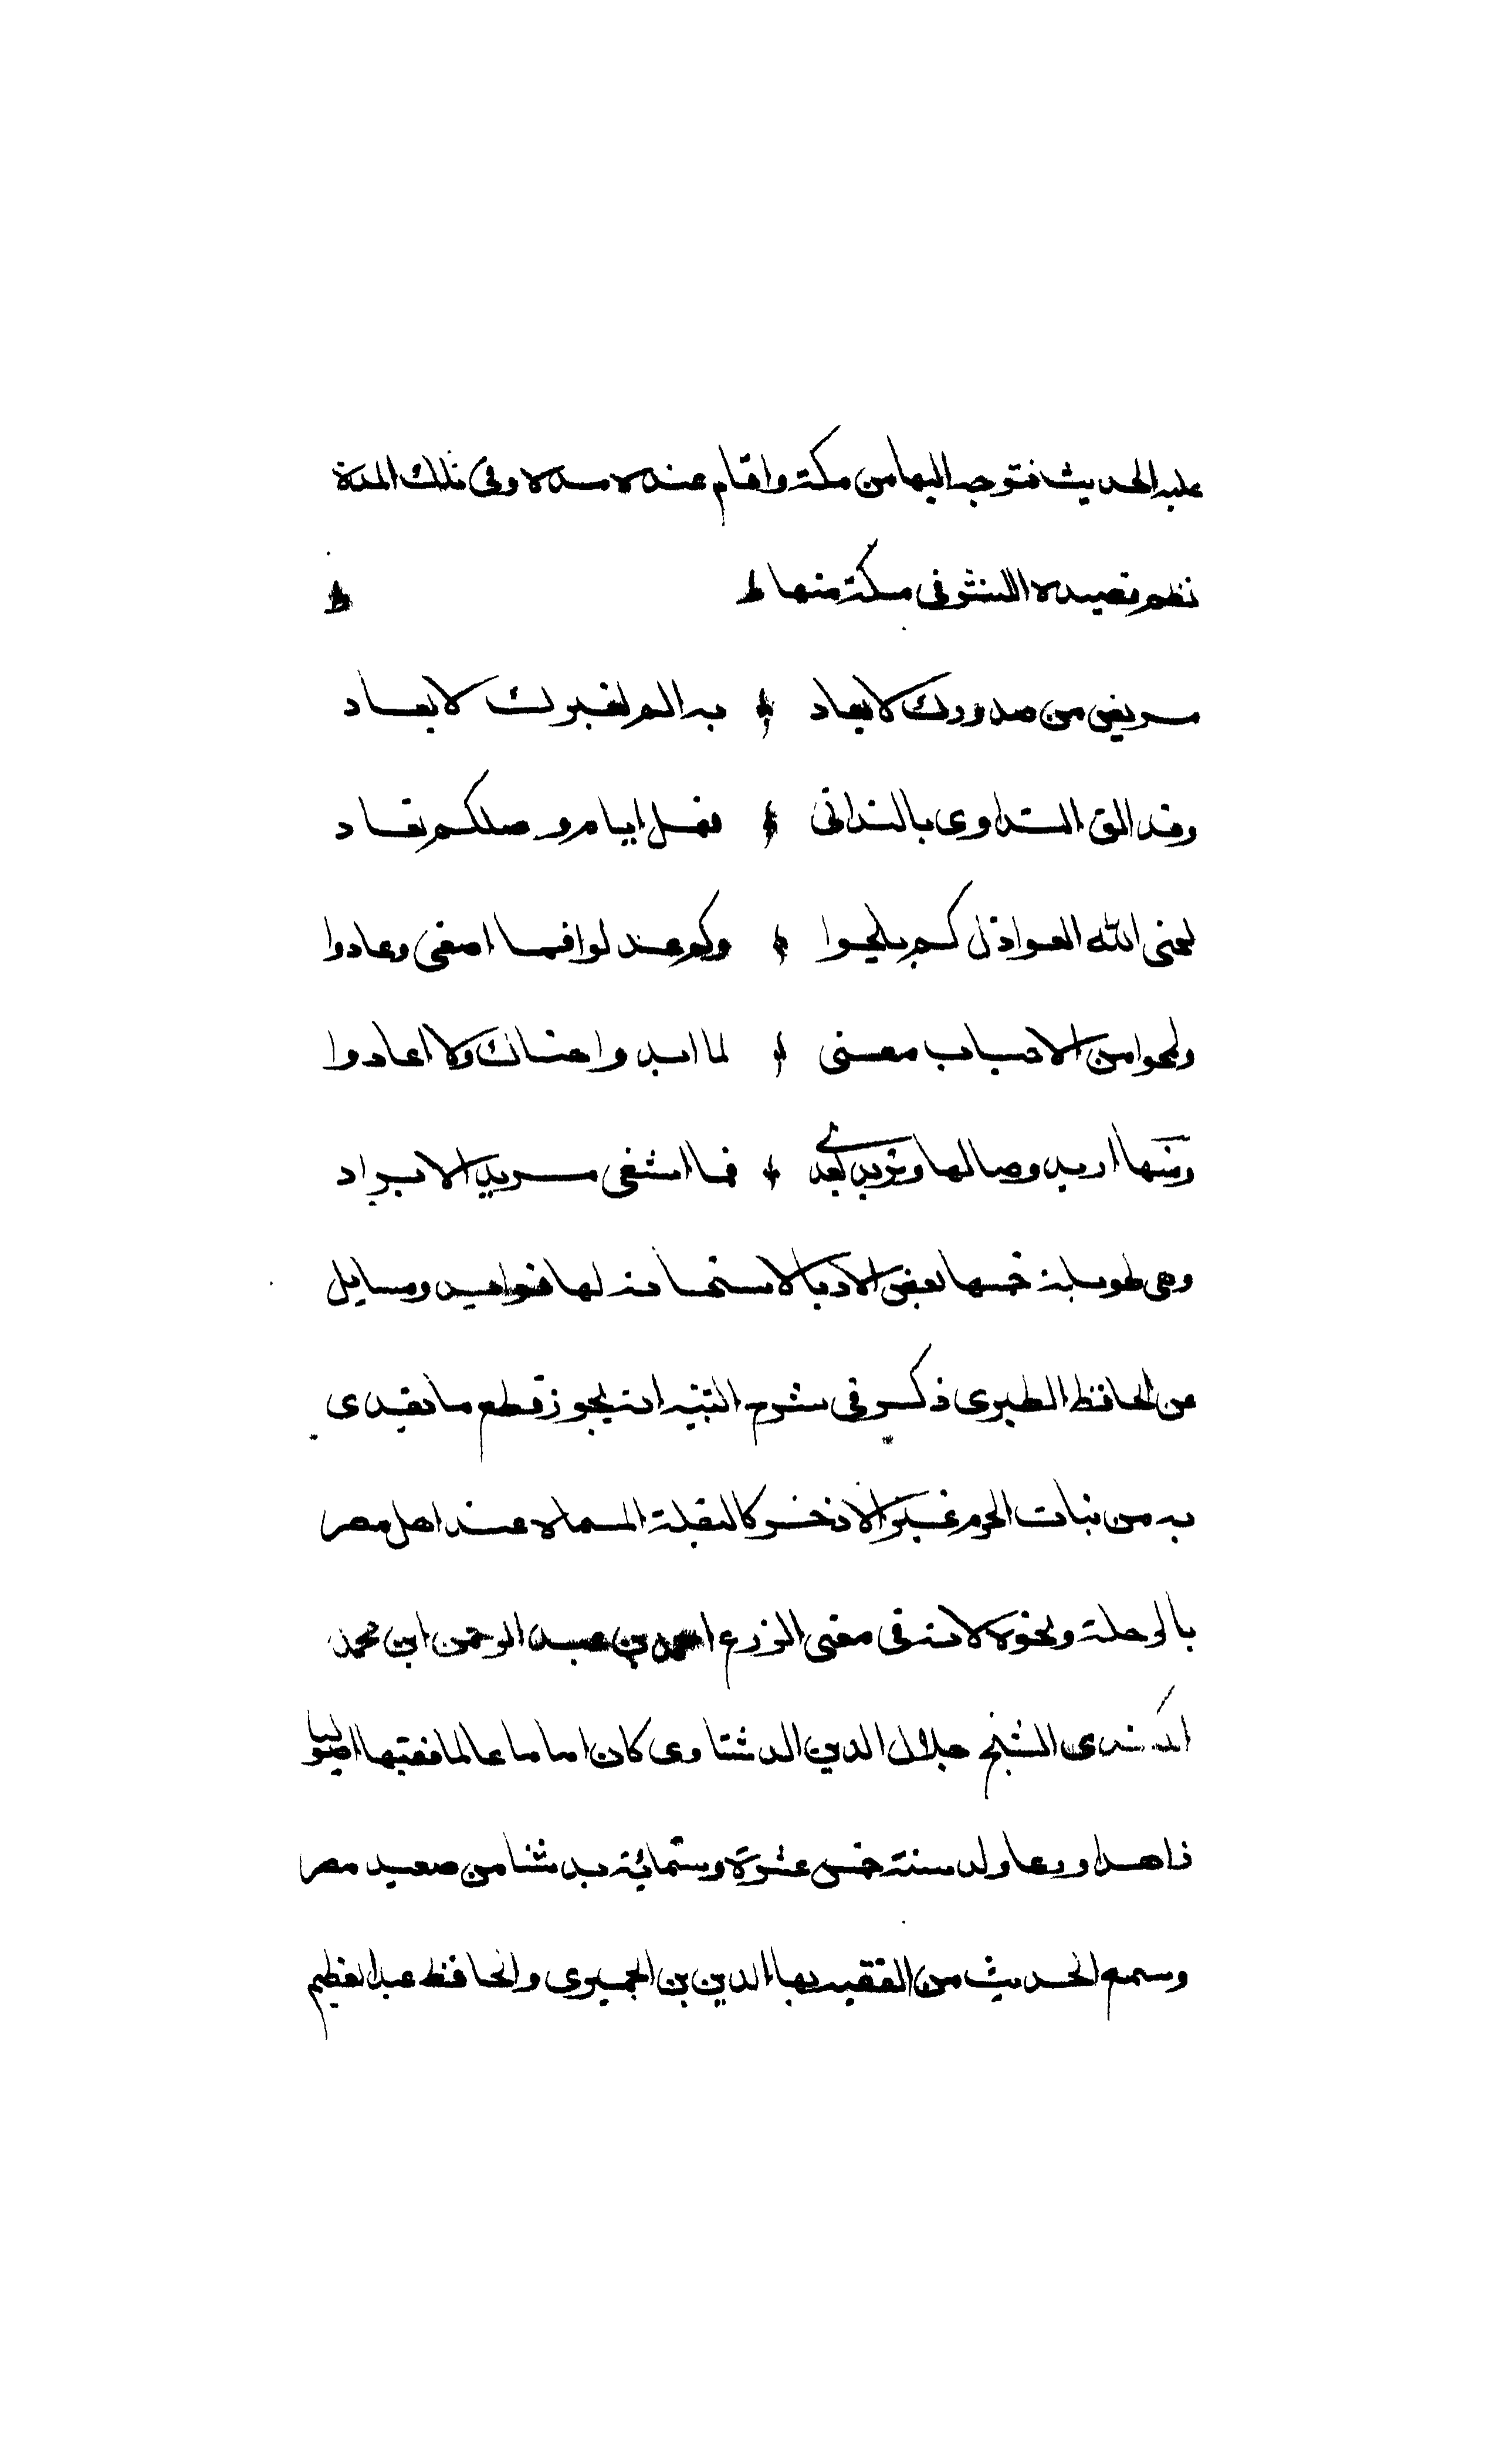 عليه الحديث فتوجه اليها من مكة واقام عنده مدة وفي تلك المدة
نظم قصيدة التشوق مكة منها
مريض من صدودك لا يعاد به الم لغيرك لا يعاد
وقد الف التداوي بالتداني فهل ايام وصلكم تعاد
لحى الله العواذل كم يلحوا وكم عذلوا فما اصغى وعادوا
ولمحوا من الاحباب معنى لما ابدوا هناك ولا اعادوا
ومنها اريد وصالها وتريد بعدي فما اشقى مريد الا يراد
وهي طويلة خمسها بعض الادبا لاستحسانه لها فوايد ومسايل
عن الحافظ الطبري ذكر في شرح التنبيه انه يجوز قطع ما يغدى
به من نبات الحرم غير الاذخر كالبقلة المسماه عند اهل مصر
بالرجلة ونحوه لانه في معنى الزرع احمد بن عبد الرحمن ابن محمد
الكندي الشيخ جلال الدين الدشناوي كان اماما عالما فقيها اصوليا
زاهدا ورعا ولد سنة خمس عشرة وستمائة بدشنا من صعيد مصر
وسمع الحديث من الفقيه بها الدين بن الجميزي والحافظ عبد العظيم